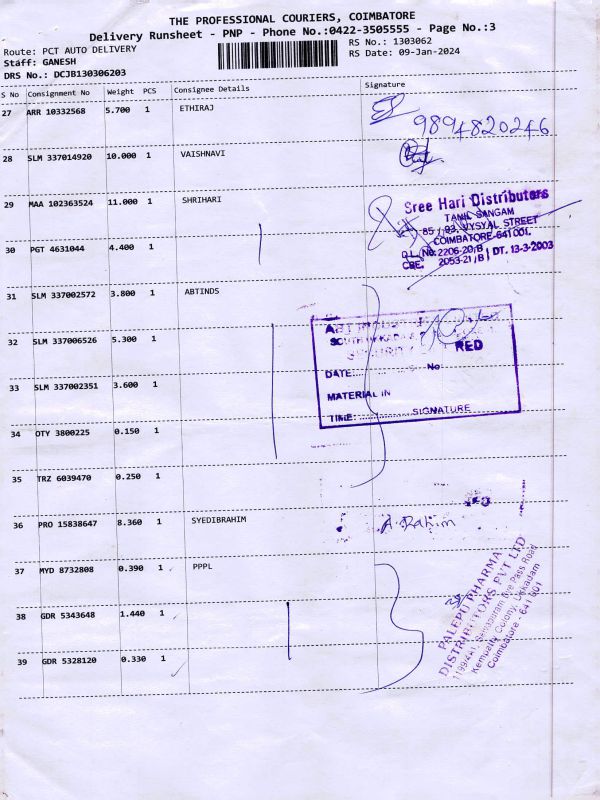 THE PROFESSIONAL COURIERS, COIMBATORE
Delivery Runsheet - PNP - Phone No.:0422-3505555 - Page No.:3
Route: PCT AUTO DELIVERY
RS No.: 1303062
Staff: GANESH
RS Date: 09-Jan-2024
DRS No.: DCJB130306203
S No Consignment No Weight PCS Consignee Details Signature
27 ARR 10332568 5.700 1 ETHIRAJ
9894820246
28 SLM 337014920 10.000 1 VAISHNAVI
29 MAA 102363524 11.000 1 SHRIHARI
Sree Hari Distributors
TAMIL SANGAM
85 / 93, VYSYAL STREET
COIMBATORE-641 001.
D.L. No: 2206-20,B
CBE. 2053-21 / B DT. 13-3-2003
30 PGT 4631044 4.400 1
31 SLM 337002572 3.800 1 ABTINDS
32 SLM 337006526 5.300 1
RED
DATE: No
MATERIAL IN
TIME: SIGNATURE
33 SLM 337002351 3.600 1
34 OTY 3800225 0.150 1
35 TRZ 6039470 0.250 1
36 PRO 15838647 8.360 1 SYEDIBRAHIM
A. Rahim
37 MYD 8732808 0.390 1 PPPL
PALEPU PHARMA
DISTRIBUTORS PVT LTD
Kempatty Colony, Ukkadam
Coimbatore - 641 001
38 GDR 5343648 1.440 1
39 GDR 5328120 0.330 1